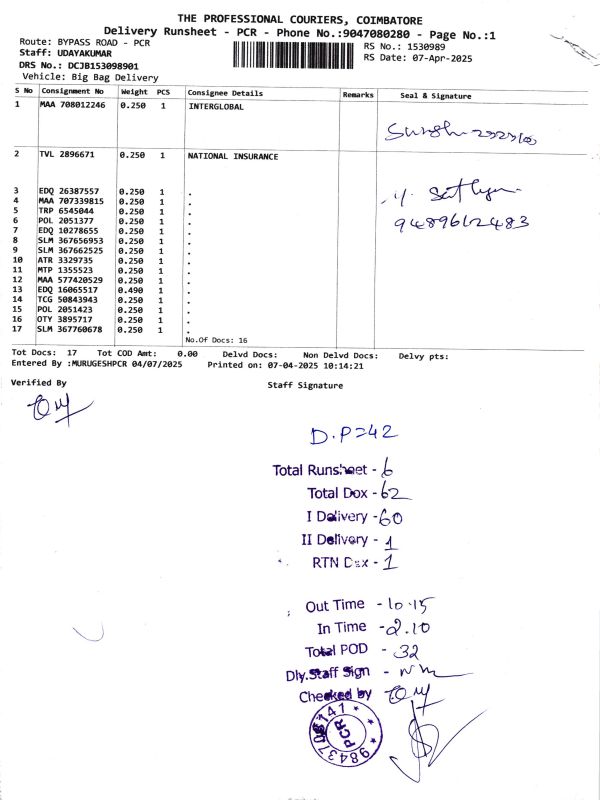 THE PROFESSIONAL COURIERS, COIMBATORE
Delivery Runsheet - PCR - Phone No.:9047080280 - Page No.:1
Route: BYPASS ROAD - PCR
Staff: UDAYAKUMAR
DRS No.: DCJB153098901
Vehicle: Big Bag Delivery
RS No.: 1530989
RS Date: 07-Apr-2025
S No Consignment No Weight PCS Consignee Details Remarks Seal & Signature
1 MAA 708012246 0.250 1 INTERGLOBAL
2 TVL 2896671 0.250 1 NATIONAL INSURANCE
9489612483
3 EDQ 26387557 0.250 1 .
4 MAA 707339815 0.250 1 .
5 TRP 6545044 0.250 1 .
6 POL 2051377 0.250 1 .
7 EDQ 10278655 0.250 1 .
8 SLM 367656953 0.250 1 .
9 SLM 367662525 0.250 1 .
10 ATR 3329735 0.250 1 .
11 MTP 1355523 0.250 1 .
12 MAA 577420529 0.250 1 .
13 EDQ 16065517 0.490 1 .
14 TCG 50843943 0.250 1 .
15 POL 2051423 0.250 1 .
16 OTY 3895717 0.250 1 .
17 SLM 367760678 0.250 1 .
No.Of Docs: 16
Tot Docs: 17 Tot COD Amt: 0.00 Delvd Docs: Non Delvd Docs: Delvy pts:
Entered By :MURUGESHPCR 04/07/2025 Printed on: 07-04-2025 10:14:21
Verified By Staff Signature
D.P=42
Total Runsheet - 6
Total Dox - 62
I Delivery - 60
II Delivery - 1
RTN Dox - 1
Out Time - 10.15
In Time - 2.10
Total POD - 32
Dly.Staff Sign -
Checked by
PCR